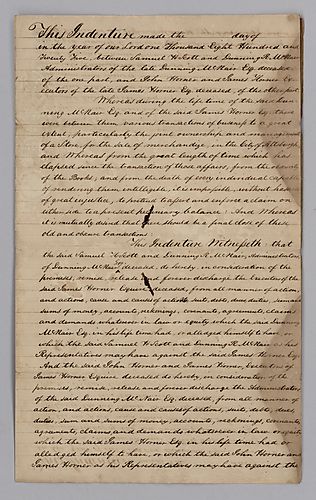 This Indenture made the day of
in the year of our Lord one Thousand Eight Hundred and
Twenty Five, between Samuel Scott and Dunning R. McNair,
Administrators of the late Dunning McNair Esq. deceased
of the one part, and John Horner and James Horner Ex-
ecutors of the late James Horner Esq. deceased, of the other part.
Whereas during the life time of the said Dun-
ning McNair Esq. and of the said James Horner Esq. there
were between them various transactions of business to a great
extent, particularly the joint ownership and management
of a Store, for the sale of merchandize, in the City of Pittsburgh
and Whereas from the great length of time which has
elapsed since the transaction of these affairs, from the
of the Books, and from the death of every individual capable
of rendering them intelligible, it is impossible, without hazard
of great injustice, to pretend to assert and enforce a claim on
either side to a pecuniary balance: And Whereas
it is mutually desired that there should be a final close of these
old and obscure transactions:
This Indenture Witnesseth, that
the said Samuel Scott and Dunning R. McNair, Administrators
of Dunning McNair Esqr. deceased, do hereby, in consideration of the
premises, remise, release and forever discharge the Executors of the
said James Horner Esquire deceased, from all manner of action
and actions, cause and causes of action, suits, debts, dues, duties, sum and
sums of money, accounts, reckonings, covenants, agreements, claims
and demands whatsoever in law or equity which the said Dunning
McNair Esq. in his life time had, or alledged himself to have, or
which the said Samuel Scott and Dunning R. McNair as his
Representatives may have against the said James Horner Esq.
And the said John Horner and James Horner, Executors of
James Horner Esquire deceased do hereby, in consideration of the
premises, remise, release and forever discharge the Administrators
of the said Dunning McNair Esq. deceased, from all manner of
action, and actions, cause and causes of action, suits, debts, dues,
duties, sum and sums of money, accounts, reckonings, covenants,
agreements, claims, and demands whatsoever in law or equity
which the said James Horner Esq. in his life time had or
alledged himself to have, or which the said John Horner and
James Horner as his Representatives may have against the